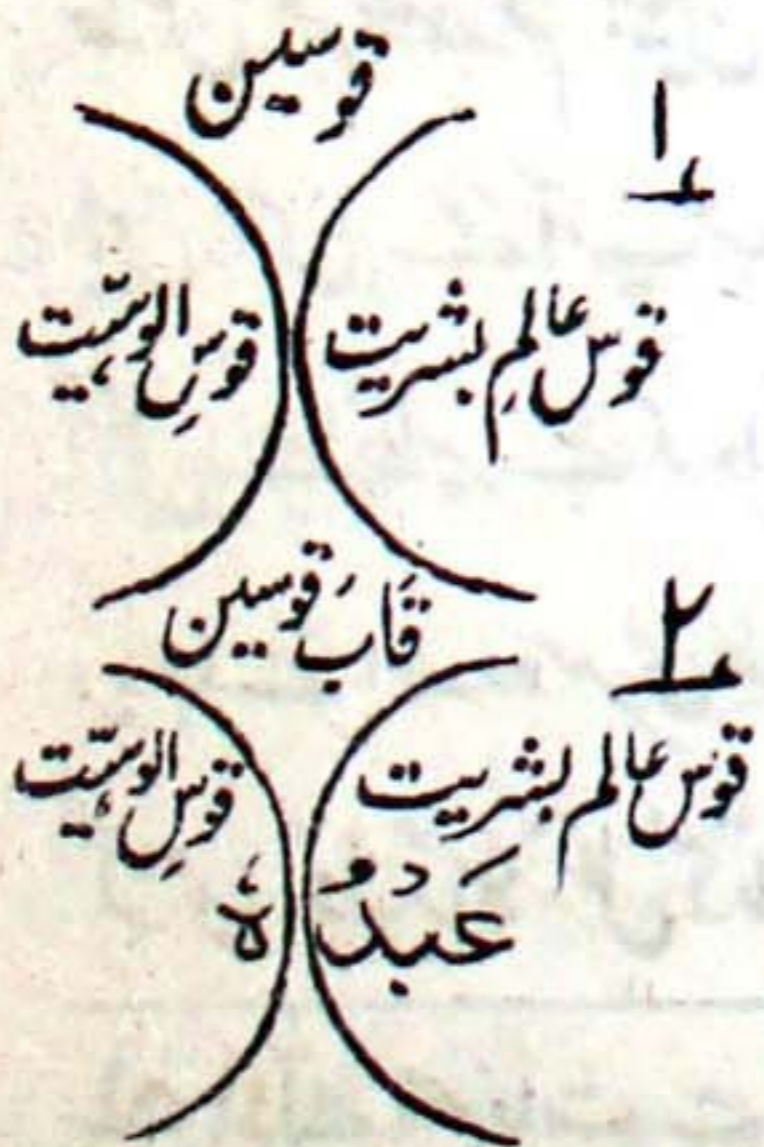 قوسین
۱
قوس عالمِ بشریت قوسِ الوہیّت
قَابَ قوسین
۲
قوس عالم بشریت قوسِ الوہیّت
عَبْدُ هٗ